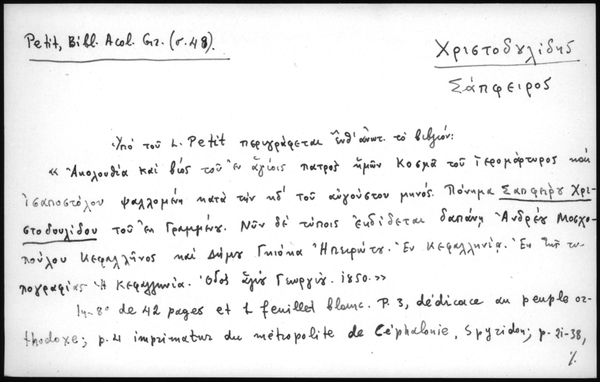 Petit, Bibl. Acol. Gr. (σ. 48).
Χριστοδȣλίδης
Σάπφειρος
Ὑπό τοῦ L. Petit περιγράφεται ἔνθ' ἀνωτ. τό βιβλίον:
« Ἀκολουθία καί βίος τοῦ ἐν ἁγίοις πατρός ἡμῶν Κοσμᾶ τοῦ ἱερομάρτυρος καί
ἰσαποστόλου ψαλλομένη κατά τήν κδ' τοῦ αὐγούστου μηνός. Πόνημα Σαπφείρȣ Χρι-
στοδουλίδου τοῦ ἐκ Γραμμένȣ. Νῦν δέ τύποις ἐκδίδεται δαπάνῃ Ἀνδρέȣ Μοσχο-
πούλου Κεφαλλῆνος καί Δήμȣ Γκιόκα Ἠπειρώτȣ. Ἐν Κεφαλληνίᾳ. Ἐκ τῆς τυ-
πογραφίας Ἡ Κεφαλληνία. Ὁδός ἁγίȣ Γεωργίȣ. 1850. »
In-8° de 42 pages et 1 feuillet blanc. P. 3, dédicace au peuple or-
thodoxe; p. 4 imprimatur du métropolite de Céphalonie, Spyridon; p. 21-38,
%.